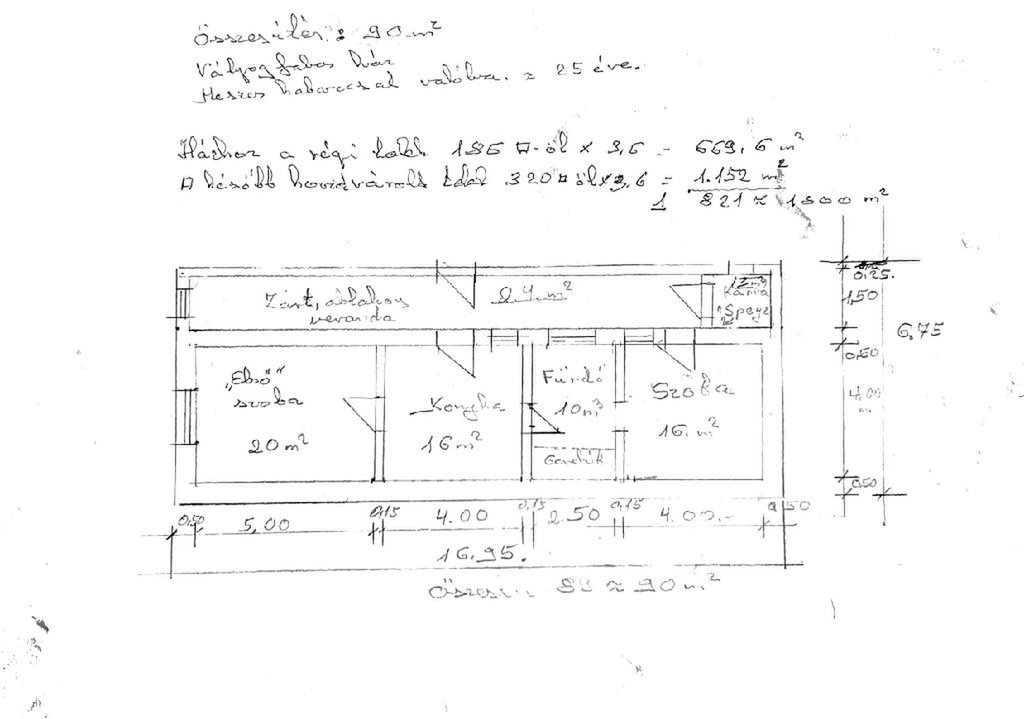 Összesítés: 90 m²
Vályogfalas ház
Meszes habarccsal valólva. = 25 éve.
Házhoz a régi telek 186 □-öl x 3,6 = 669,6 m²
A később hozzávásárolt telek 320 □ öl x 3,6 = 1.152 m²
1 821 ≈ 1800 m²
Zárt, ablakos
veranda
24 m²
Kamra
"Speiz"
0,25.
1,50
6.75
0,50
4,00
m.
0,50
"Első"
szoba
20 m²
Konyha
16 m²
Fürdő
10 m³
Szoba
16. m²
0,50
5,00
0,15
4.00
0,15
2.50
0,15
4.00.-
0,50
16.95.
Összesen: 89 ≈ 90 m²